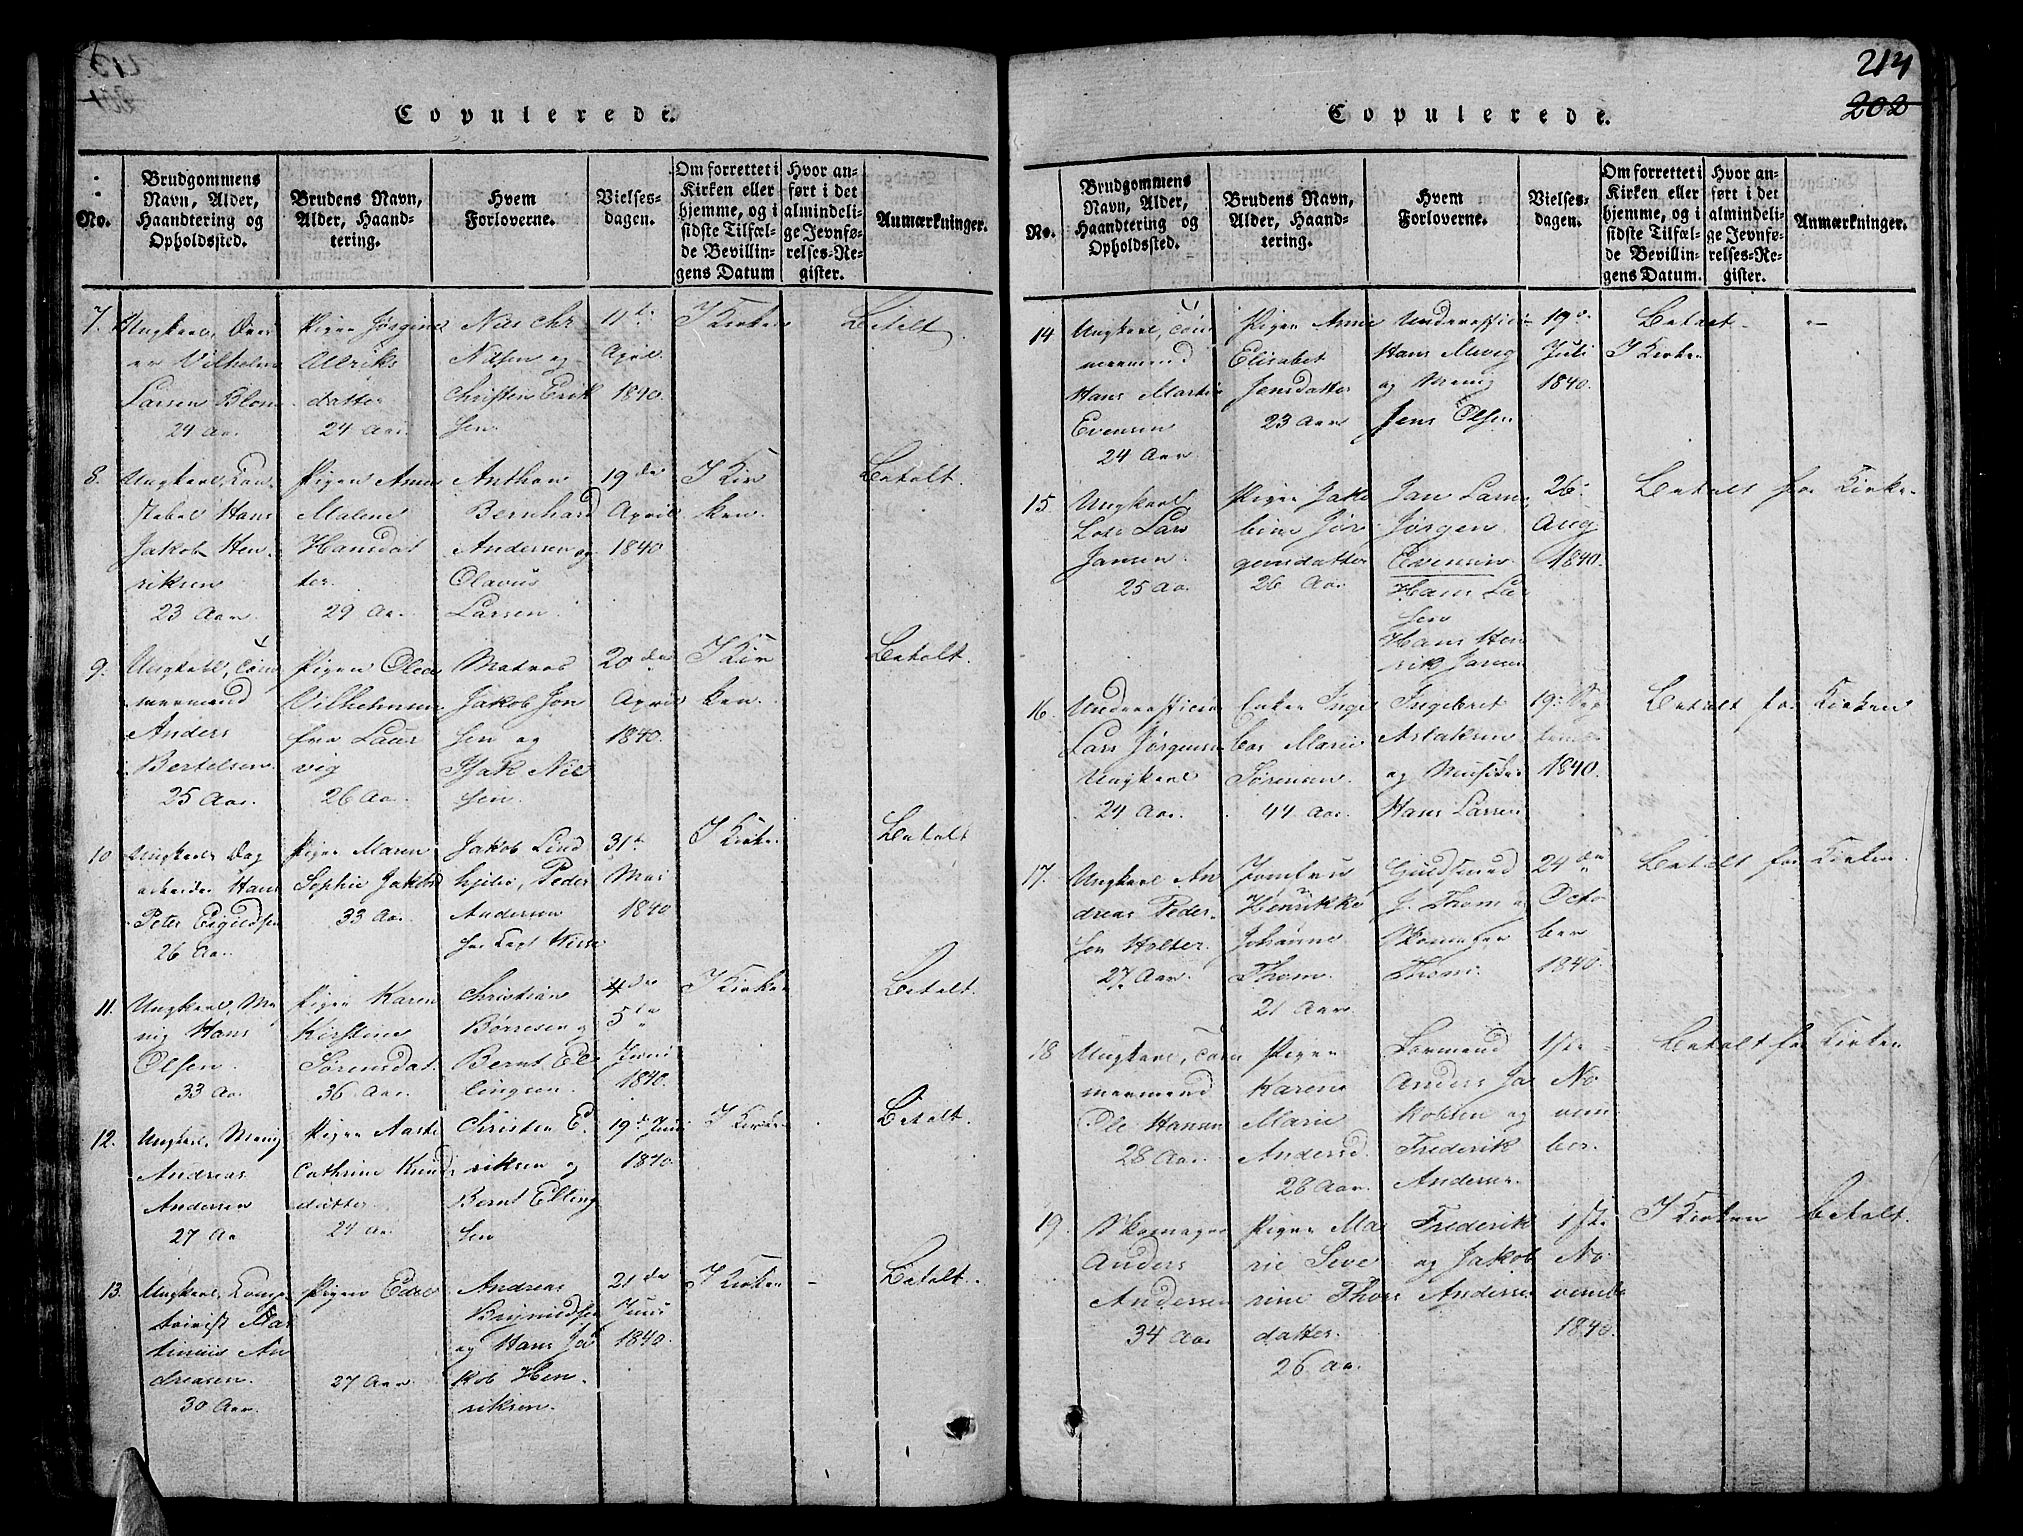 Copulerede.
No.
Brudgommens Navn, Alder, Haandtering og Opholdssted.
Brudens Navn, Alder, Haandtering.
Hvem Forloverne.
Vielses-dagen.
Om forrettet i Kirken eller hjemme, og i sidste Tilfælde Bevillingens Datum
Hvor anført i det almindelige Jevnførelses-Register.
Anmærkninger.
7. Ungkarl,
Vilhelm
Larsen Blom
24 Aar.
Pigen Jørgine
Ulriks
datter
24 Aar.
Nils Chr
Nilsen og
Christen Erik
sen
11te
April
1840.
I Kirken
Betalt
8. Ungkarl, Con
stabel Hans
Jakob Hen
riksen
23 Aar
Pigen Anne
Malene
Hansdat
ter.
29 Aar.
Anthon
Bernhard
Andersen og
Olavus
Larsen
19de
April
1840
I Kir
ken.
Betalt.
9. Ungkarl, Töm
mermand
Anders
Bertelsen
25 Aar.
Pigen Olea
Vilhelmine
fra Laur
vig
26 Aar.
Matros
Jakob Jon
sen og
Isak Nil
sen.
20de
April
1840.
I Kir
ken.
Betalt.
10 Ungkarl, Dag
arbeider Hans
Peter
26 Aar.
Pigen Maren
Sophie Jakobs
33 Aar.
Jakob Lind
hjelm, Peder
Andersen
31te
Mai
1840
I Kirke.
Betalt
11. Ungkarl, Me
nig Hans
Olsen
33 Aar
Pigen Karen
Kirstine
Sørensdat.
36 Aar.
Christian
Børresen og
Bernt El
lingsen.
4de
5te
Juni
1840.
I Kirken
Betalt.
12. Ungkarl, Menig
Andreas
Andersen
27 Aar
Pigen Aaste
Cathrine Knud
datter
24 Aar.
Christen E.
riksen og
Bernt Elling
sen
19de Juni
1840.
I Kirke.
Betalt.
13. Ungkarl,
Mar
tinius An
dreasen.
30 Aar.
Pigen Edel
27 Aar
Andreas
Brijnildsen
og Hans Ja
kob Hen
riksen.
21de
Juni
1840.
I Kirken
-
Betalt.
214
202
Copulerede.
No.
Brudgommens Navn, Alder, Haandtering og Opholdssted.
Brudens Navn, Alder, Haandtering.
Hvem Forloverne.
Vielses-dagen.
Om forrettet i Kirken eller hjemme, og i sidste Tilfælde Bevillingens Datum.
Hvor anført i det almindelige Jevnførelses-Register.
Anmærkninger.
14 Ungkarl, Töm
mermand
Hans Martin
Evensen
24 Aar
Pigen Anne
Elisabet
Jensdatter
23 Aar
Underofficier
Hans
og Menig
Jens Olsen
19de
Juli
1840.
Betalt
I Kirken
15. Ungkarl,
Lods Lars
Jansen.
25 Aar.
Pigen Jako
bine Jør
gensdatter
26 Aar.
Jan Larsen
Jørgen
Evensen
Hans Lar
sen
Hans Hen
rik Jansen
26de
Aug
1840.
Betalt for Kirke.
16. Underofficer
Lars Jørgensen
Ungkarl
24 Aar.
Enken Inge
bor Marie
Sørensen.
44 Aar.
Ingebret
Aslaksen
og Musiker
Hans Larsen
19de Sep
tember
1840.
Betalt for Kirken
17. Ungkarl An
dreas Peder
sen Holter.
27 Aar.
Jomfru
Henrikke
Johanne
Thom.
21 Aar
Gudmund
J. Thom og
Skomager
Thom.
24de
Octo
ber
1840.
Betalt for Kirken.
18 Ungkarl, Töm
mermand
Ole Hansen
28 Aar.
Pigen
Karen
Marie
Andersd
28 Aar.
Formand
Anders Ja
kobsen og
Frederik
Andersen.
1ste
No
vem
ber.
Betalt for Kirken
19. Skomager
Anders
Andersen
34 Aar.
Pigen Ma
rie Seve
rine Thors
datter.
26 Aar.
Frederik
og Jakob
Andersen
1ste
No
vember
1840.
I Kirken
Betalt.